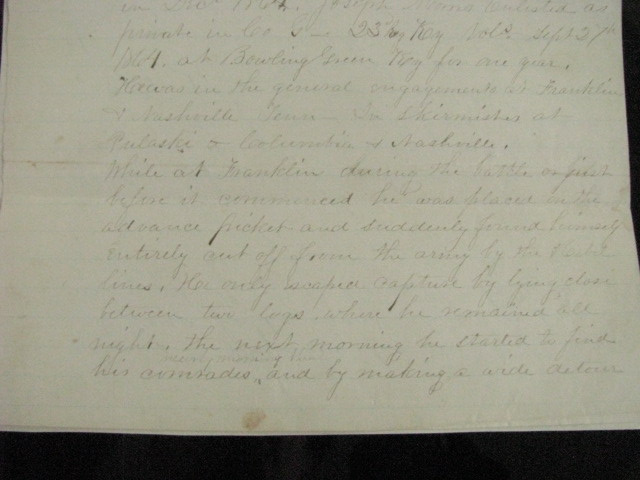 in Dec. 1864. Joseph enlisted as
private in Co 23 Ky Vols. Sept 27th
1864. at Bowling Green Ky for one year.
He was in the general engagements at Franklin
& Nashville Tenn - In skirmishes at
Pulaski & Columbia & Nashville.
While at Franklin during the battle or just
before it commenced he was placed on the
advance picket and suddenly found himself
entirely cut off from the army by the
lines. He only escaped capture by lying close
between two logs where he remained all
night. The next morning he started to find
his comrades, and by making a wide detour